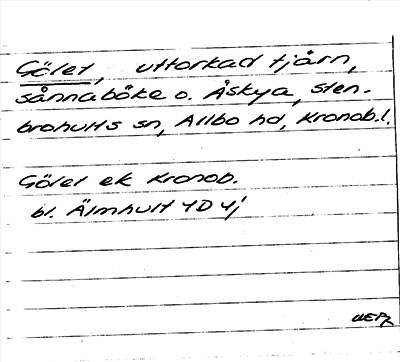 Gölet, uttorkad tjärn,
sånnaböke o. Åskya, sten-
brohults sn, Allbo hd, Kronob.l.
Gölet ek Kronob.
bl. Älmhult 4D 4j